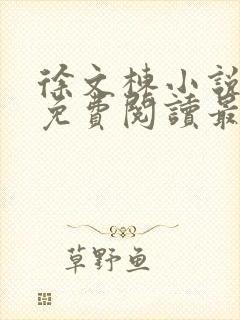 徐文棟小說
免費閱讀最
草野鱼